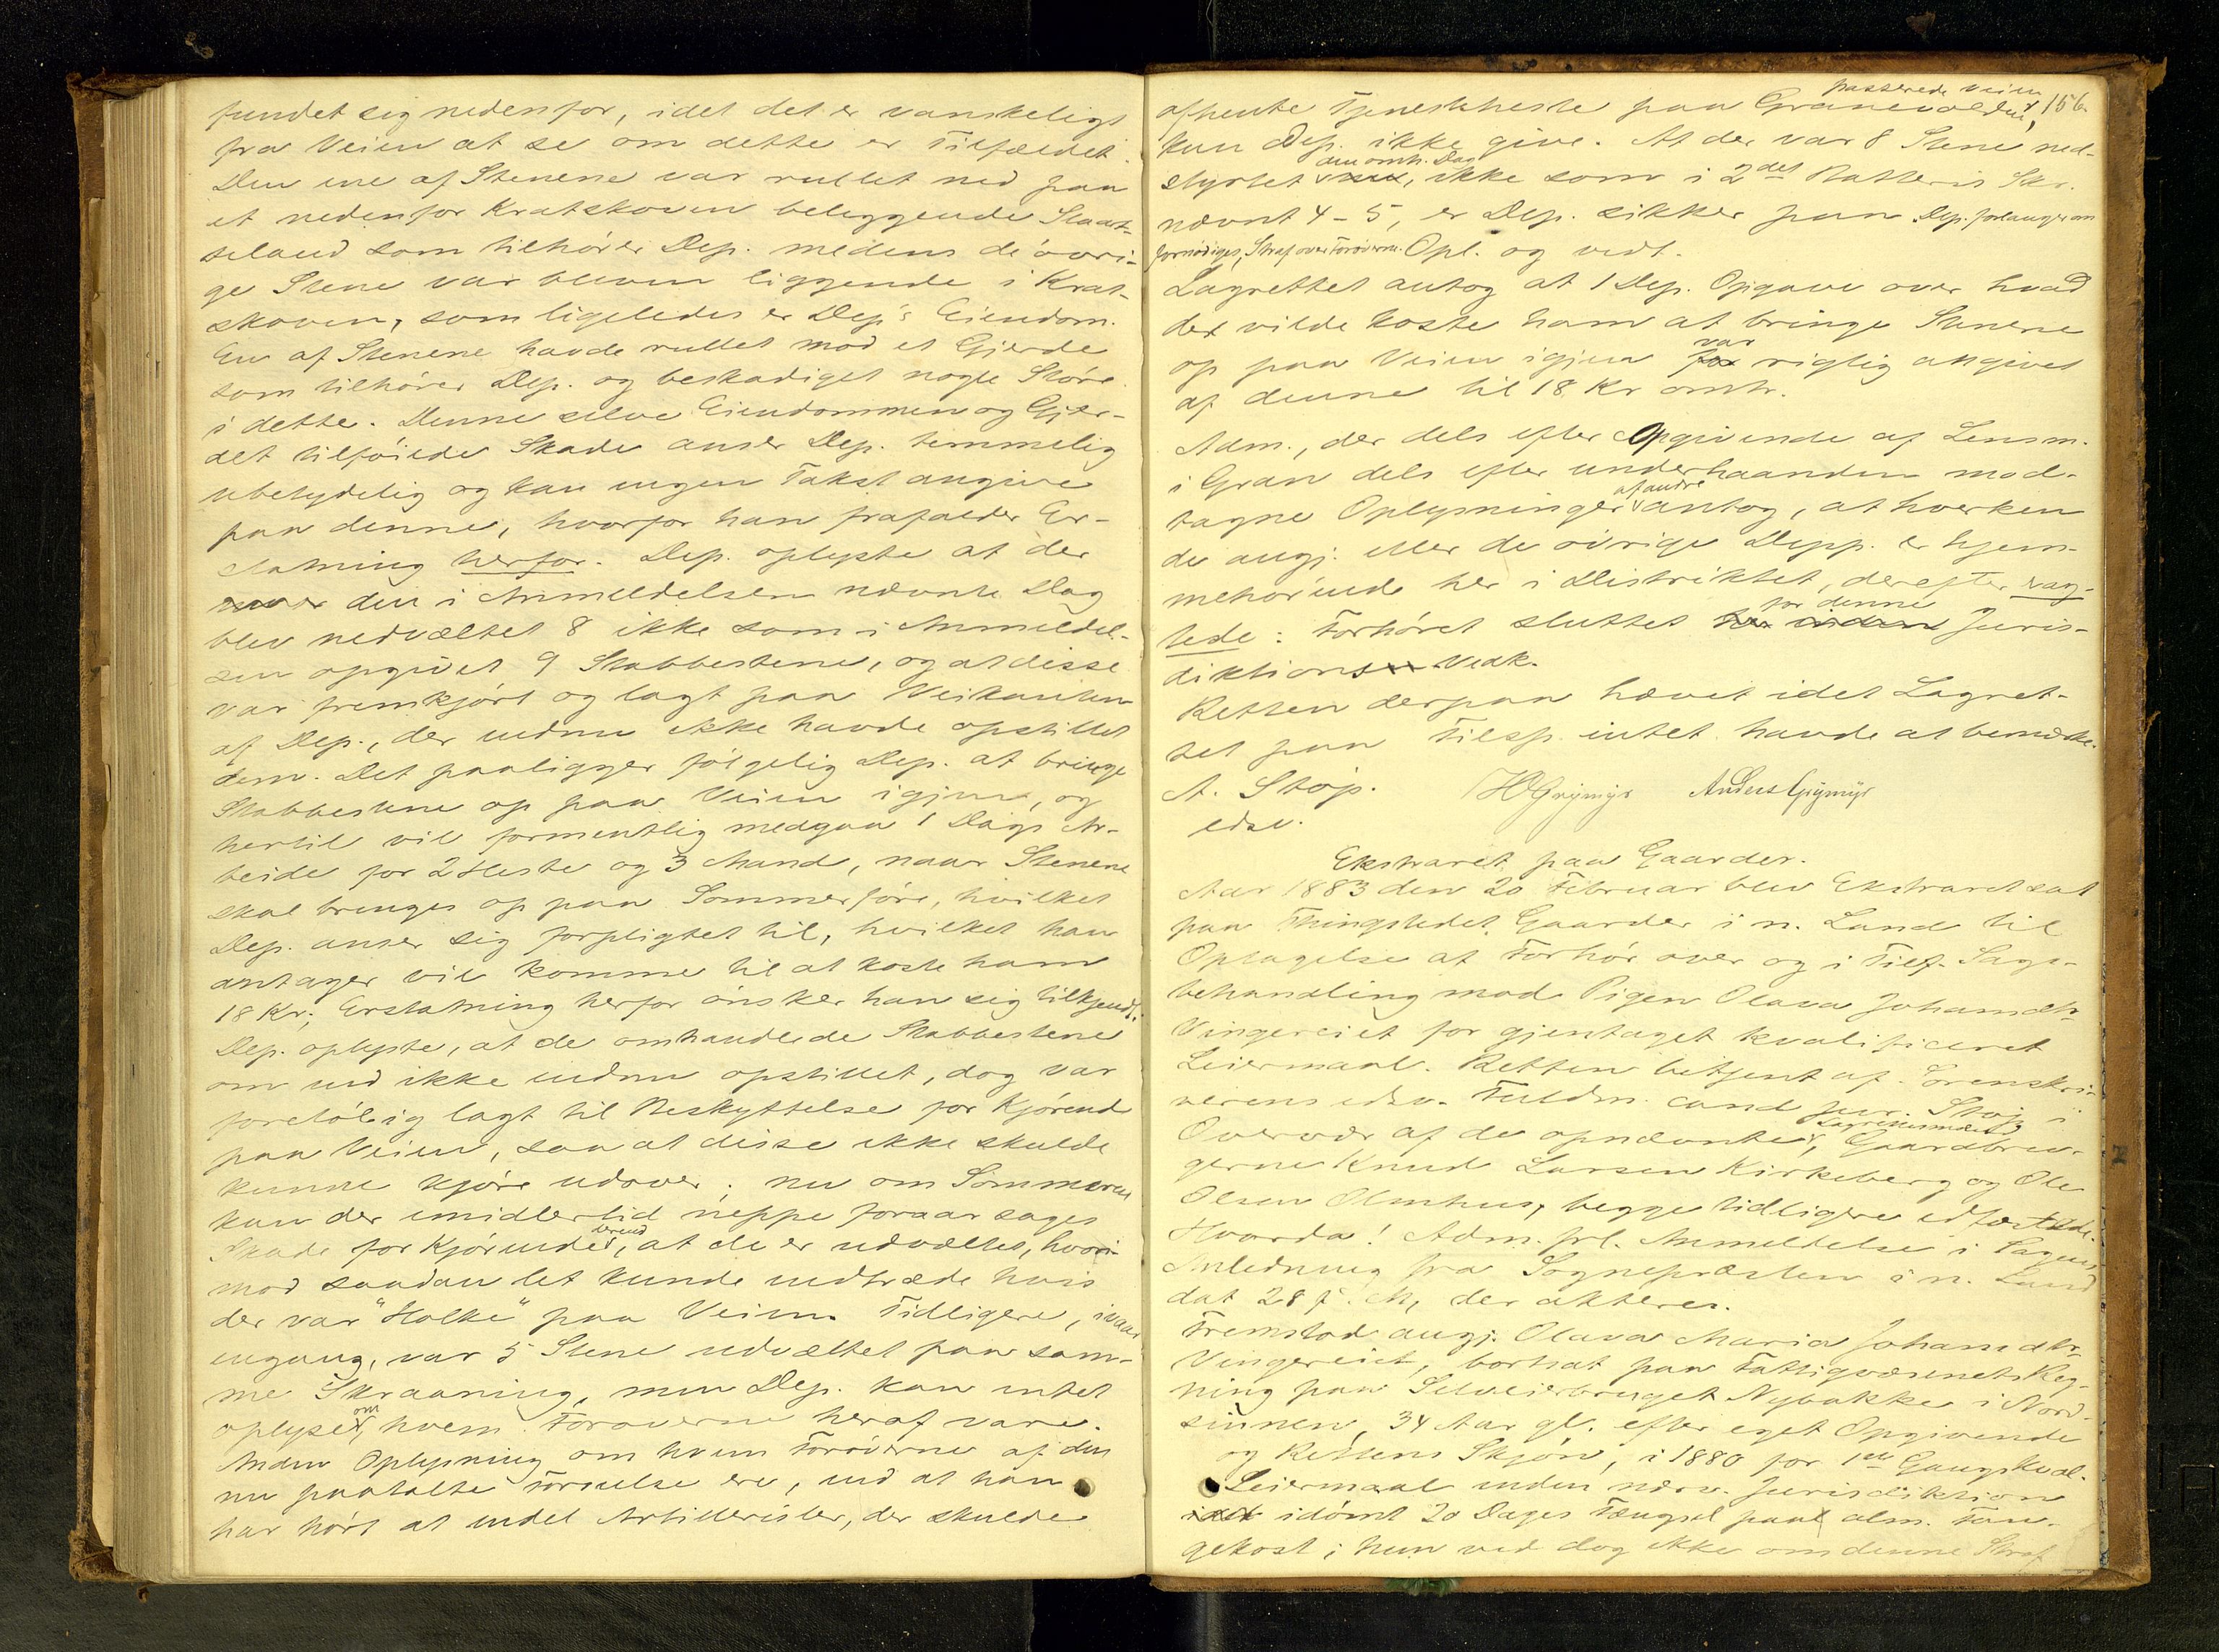 fundet sig nedenfor, idet det er vanskeligt
fra Veien at se om dette er Tilfældet.
Den ene af Stenene var rullet ned paa
et nedenfor Kratskoven beliggende
som tilhører Dep. medens de øvri-
ge Stene var bleven liggende i Krat-
skoven, som ligeledes er Dep's Eiendom.
En af Stenene havde rullet mod et Gjerde
som tilhører Dep. og beskadiget nogle Støre
i dette. Denne selve Eiendommen og Gjer-
det tilføiede Skade anser Dep. temmelig
ubetydelig og kan ingen Takst angive
paa denne, hvorfor han frafalder Er-
statning herfor. Dep. oplyste at der
den i Anmeldelsen nævnte Dag
blev nedvæltet 8 ikke som i Anmeldel-
sen opgivet 9 Stabbestene, og at disse
var fremkjørt og lagt paa Veikanten
af Dep., der endnu ikke havde opstillet
dem. Det paaligger følgelig Dep. at bringe
Stabbestene op paa Veien igjen, og
hertil vil formentlig medgaa 1 Dags Ar-
beide for 2 Heste og 3 Mand, naar Stenene
skal bringes op paa Sommerføre, hvilket
Dep. anser sig forpligtet til, hvilket han
antager vil komme til at koste ham
18 Kr; Erstatning herfor ønsker han sig tilkjendt.
Dep. oplyste, at de omhandlede Stabbestene
om end ikke endnu opstillet, dog var
foreløbig lagt til Beskyttelse for Kjørende
paa Veien, saa at disse ikke skulde
kunne kjøre udover; nu om Sommeren
kan der imidlertid neppe foraarsages
Skade for Kjørende, at de er udvæltet, hvori-
mod saadan let kunde indtræde hvis
der var "Holke" paa Veien. Tidligere, ivaar
engang, var 5 Stene udvæltet paa sam-
me Skraaning, men Dep. kan intet
oplyse om, hvem Forøverne heraf vare.
Anden Oplysning om hvem Forøverne af den
nu paatalte Forseelse ere, end at han
har hørt at endel Artillerister, der skulde
passerede Veien 156.
afhente Tjenestheste paa Granevolden,
kan Dep. ikke give. At der var 8 Stene ned-
den omh. Dag
styrtet, ikke som i 2det Batteris Skr.
nævnt 4-5, er Dep. sikker paa Dep. forlanger om
fornødiges, Straf over Forøverne. Opl. og vedt.
Lagrettet antog at 1 Dep. Opgave over hvad
det vilde koste ham at bringe Stenene
op paa Veien igjen var rigtig angivet
af denne til 18 Kr omtr.
Adm., der dels efter Opgivende af Lensm.
i Gran dels efter underhaanden mod-
af andre
tagne Oplysninger antog, at hverken
de angj. eller de øvrige Depp. er hjem-
mehørende her i Distriktet, derefter erag-
tede: Forhøret sluttet for denne Juris-
diktions Vedk.
Retten derpaa hævet idet Lagret-
tet paa Tilsp. intet havde at bemærke.
A. Støp. HGrymyr Anders Grymyr
edsv.
Ekstraret paa Gaarder.
Aar 1883 den 20 Februar blev Ekstraret sat
paa Thingstedet Gaarder i n. Land til
Optagelse at Forhør over og i Tilf. Sags-
behandling mod Pigen Olava Johansdtr
Vingereiet for gjentaget kvalificeret
Leiermaal. Retten betjent af Sorenskri-
verens edsv. Fuldm. cand jur. Støp i
Overvær af de opnævnte Lagrettesmænd, Gaardbru-
gerne Knud Larsen Kirkeberg og Ole
Olsen Olmhus, begge tidligere edfæstede.
Hvorda! Adm. frl. Anmeldelse i Sagens
Anledning fra Sognepræsten i n. Land
dat 28 f. M., der akteres.
Fremstod angj. Olava Maria Johansdtr
Vingereiet, bortsat paa Fattigvæsenets Reg-
ning paa Selveierbruget Nybakke i Nord-
sinnen, 34 Aar gl. efter eget Opgivende
og Rettens Skjøn, i 1880 for 1ste Gangs kval.
Leiermaal inden nærv. Jurisdiktion
idømt 20 Dages Fængsel paa alm. Fan-
gekost; hun ved dog ikke om denne Straf